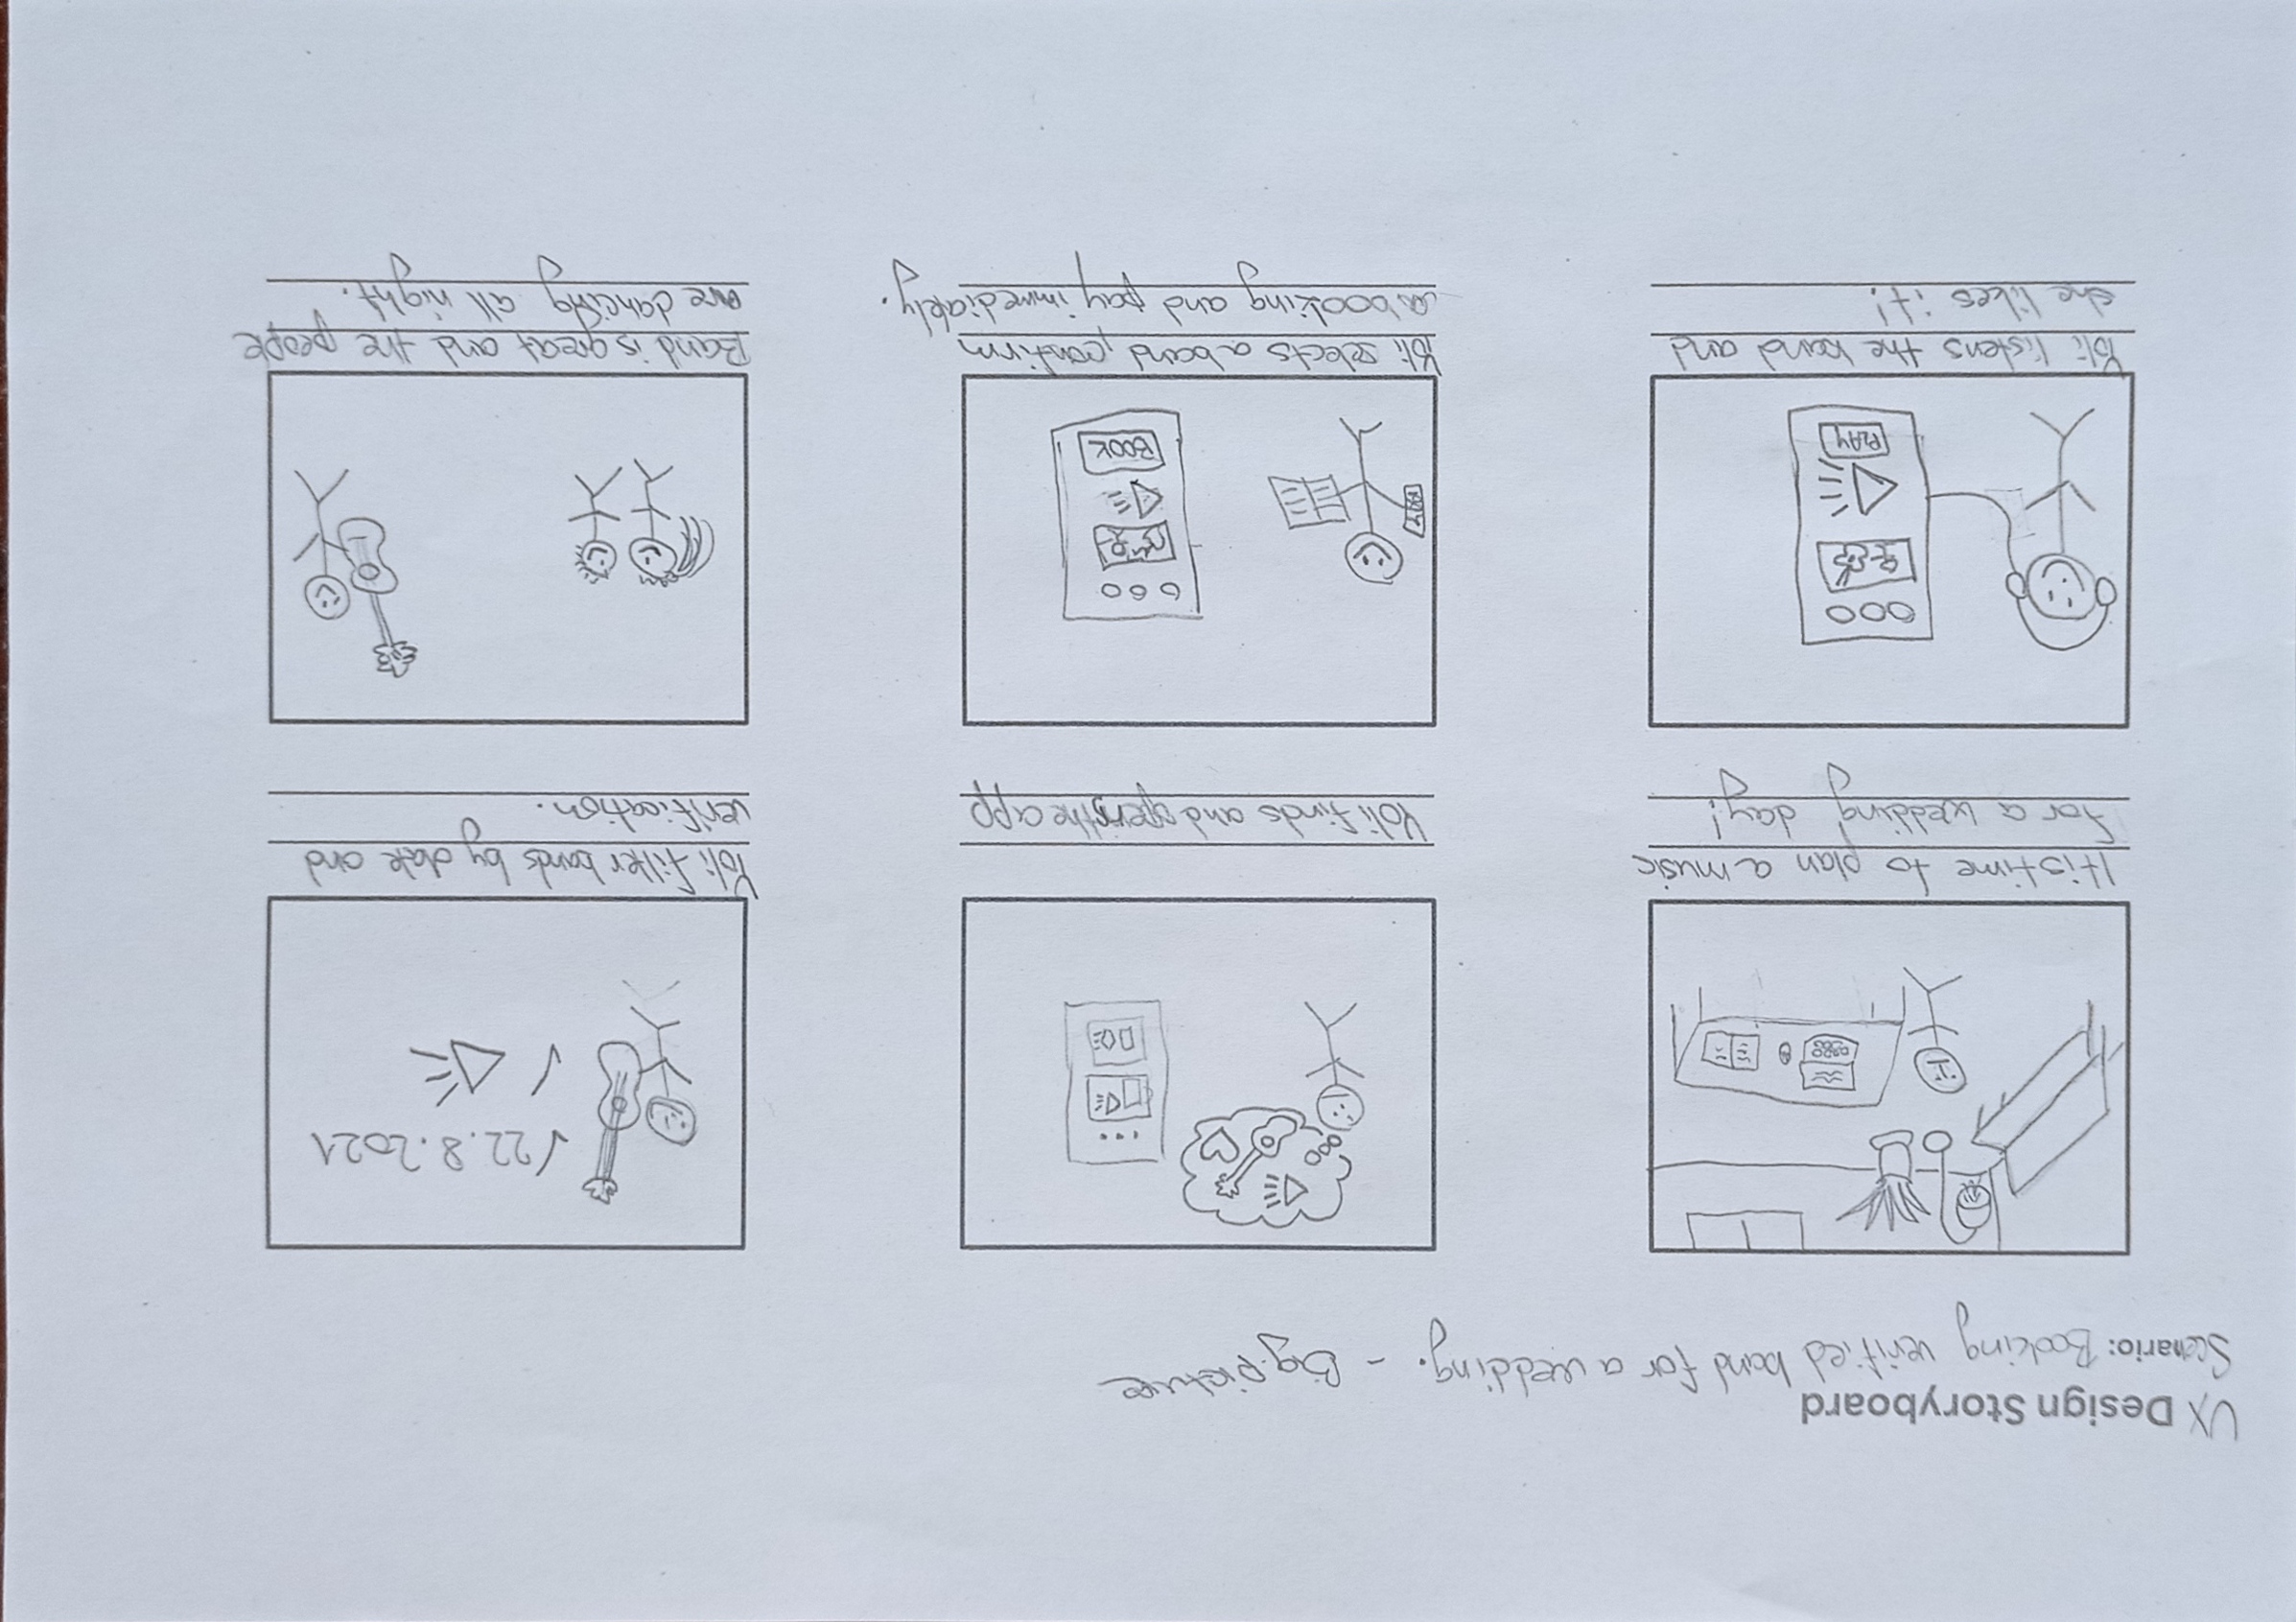 UX Design Storyboard
Scenario: Booking verified band for a wedding. - Big picture
It is time to plan a music
for a wedding day!
Yoli finds and opens the app
Yoli filter bands by date and
verification.
22.8.2021
Yoli listens the band and
she likes it!
PLAY
Yoli selects a band, confirm
a booking and pay immediately.
BOOK
Band is great and the people
are dancing all night.